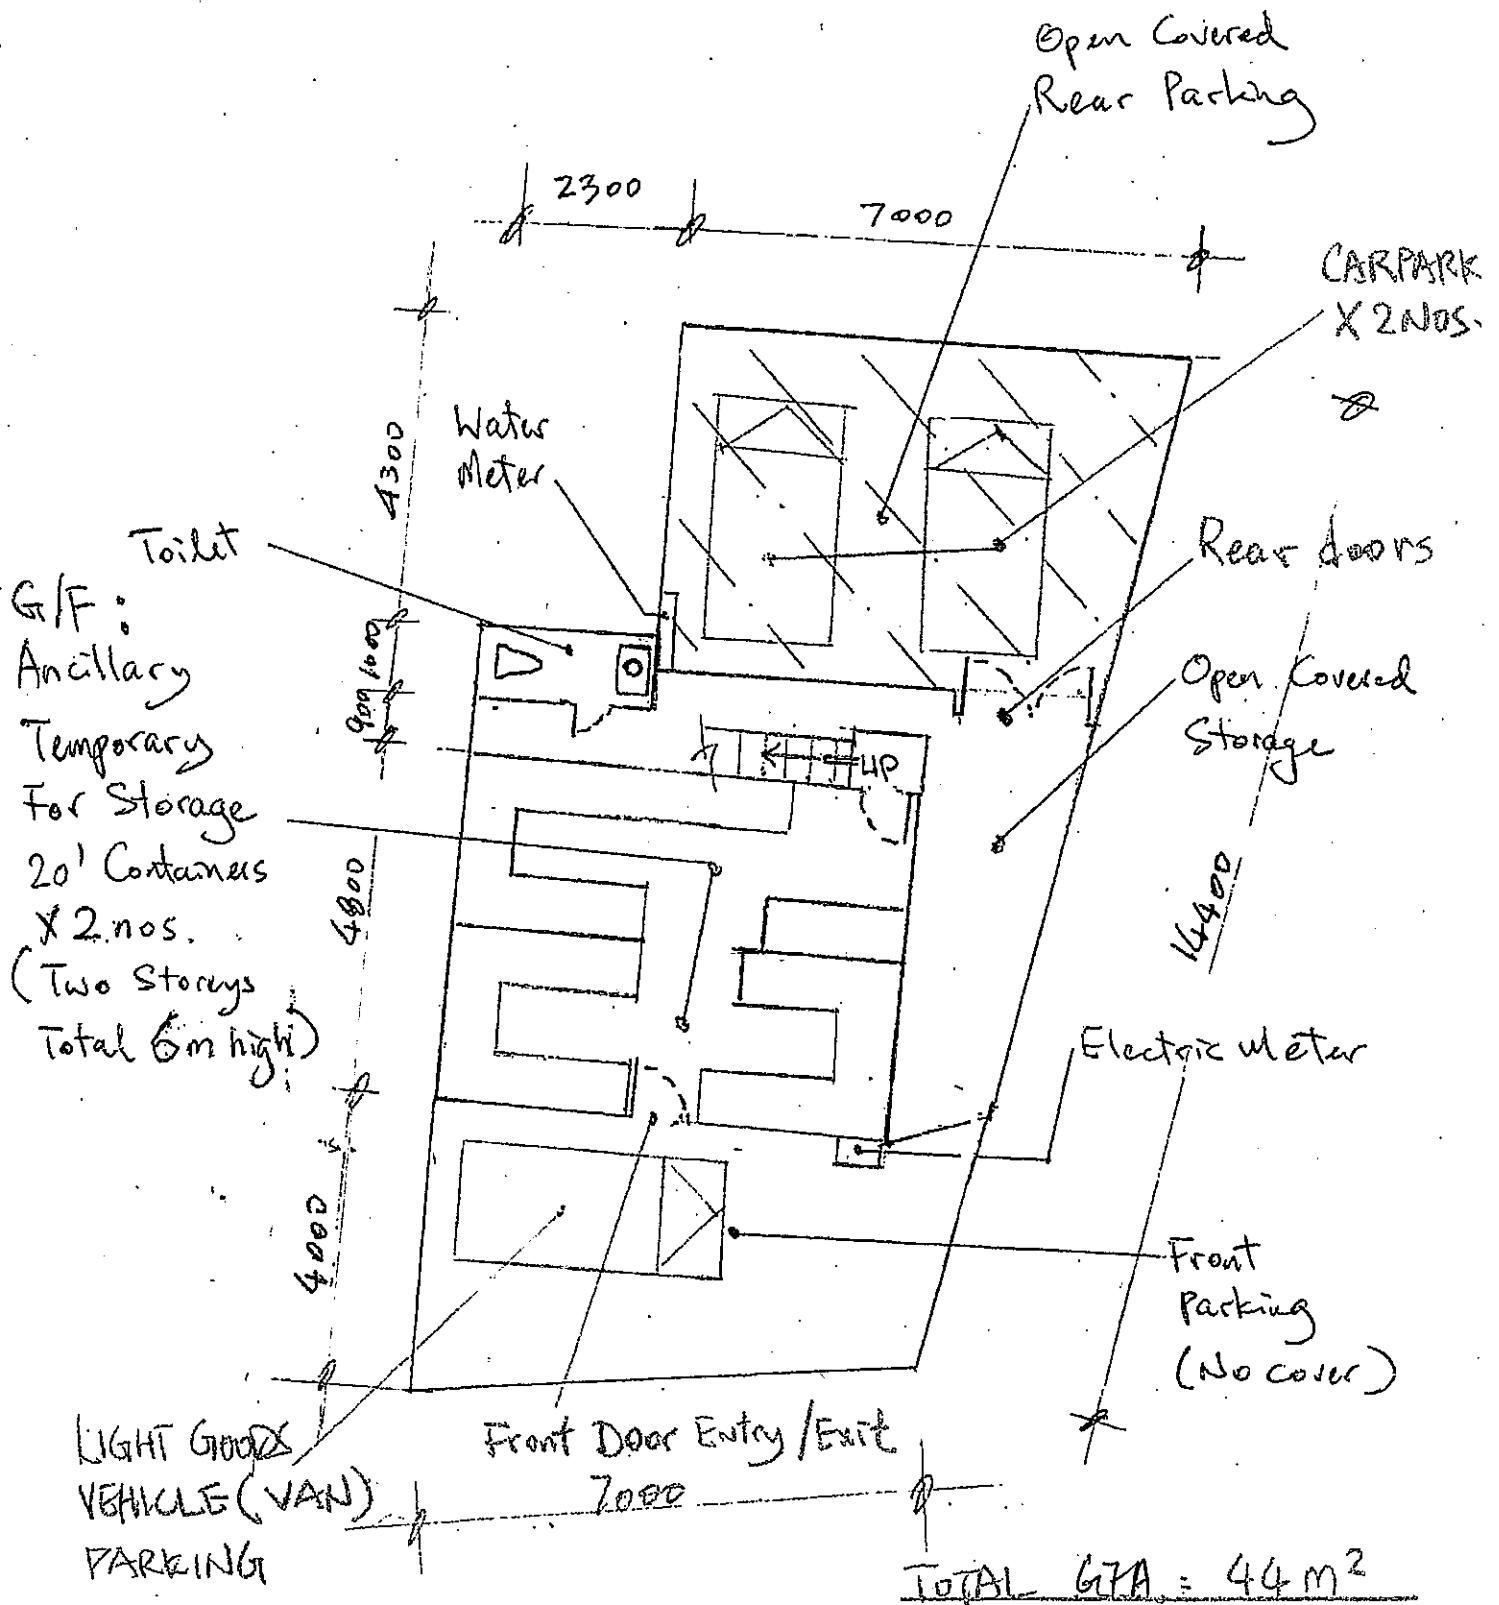 Open Covered
Rear Parking
2300
7000
CARPARK
X 2 NOS.
Water
Meter
4300
Toilet
Rear doors
G/F :
Ancillary
Temporary
For Storage
20' Containers
X 2 nos.
(Two Storeys
Total 6m high)
1000
900
UP
Open Covered
Storage
4800
14400
Electric Meter
4000
Front
Parking
(No cover)
LIGHT GOODS
VEHICLE (VAN)
PARKING
Front Door Entry/Exit
7000
TOTAL GFA = 44 m²